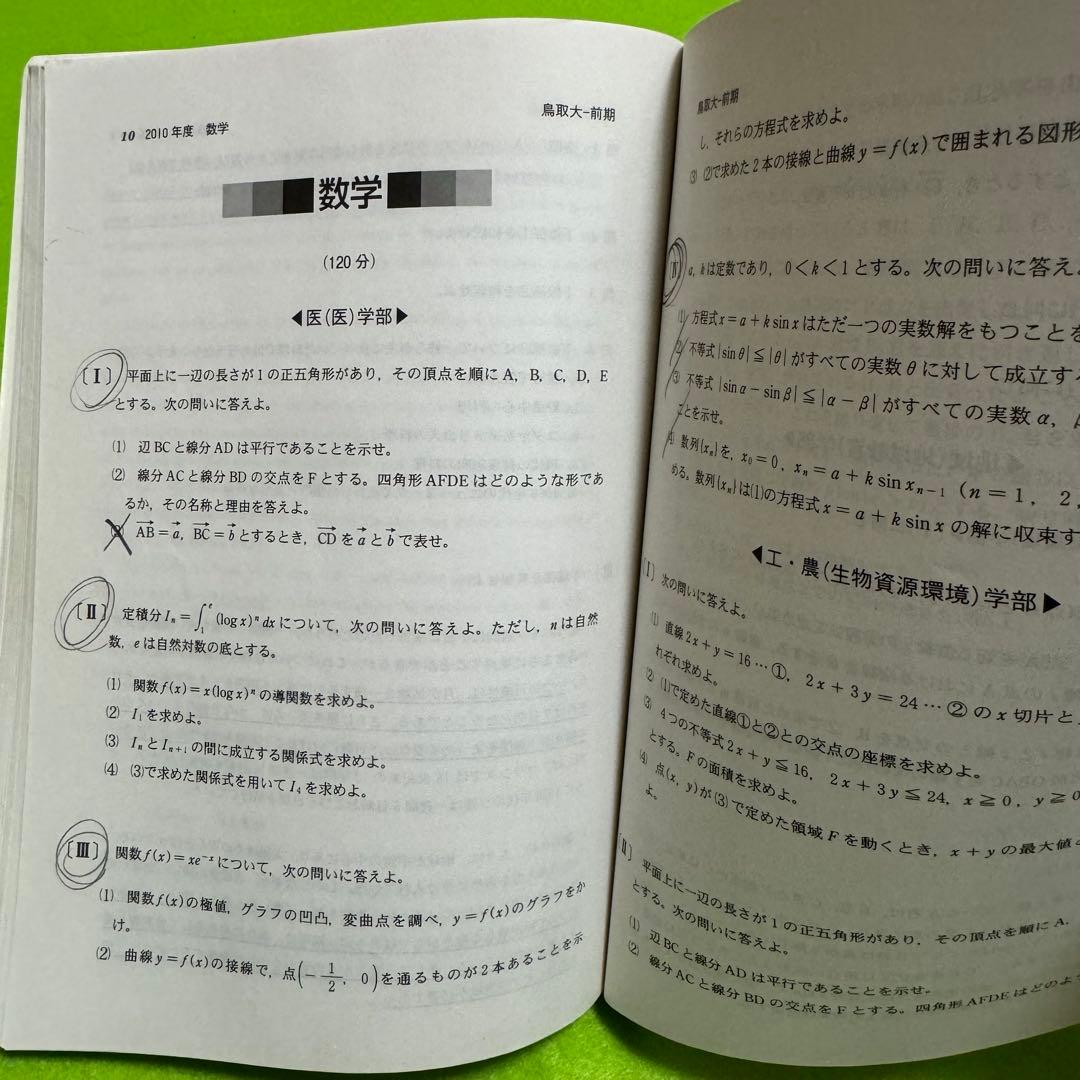 10 2010年度 数学
鳥取大-前期
数学
(120分)
◀医(医)学部▶
〔Ⅰ〕 平面上に一辺の長さが1の正五角形があり，その頂点を順にA，B，C，D，E
とする。次の問いに答えよ。
(1) 辺BCと線分ADは平行であることを示せ。
(2) 線分ACと線分BDの交点をFとする。四角形AFDEはどのような形であ
るか，その名称と理由を答えよ。
(3) AB→=a→，BC→=b→とするとき，CD→をa→とb→で表せ。
〔Ⅱ〕 定積分 Iₙ=∫₁ᵉ(log x)ⁿdxについて，次の問いに答えよ。ただし，nは自然
数，eは自然対数の底とする。
(1) 関数f(x)=x(log x)ⁿの導関数を求めよ。
(2) I₁を求めよ。
(3) IₙとIₙ₊₁の間に成立する関係式を求めよ。
(4) (3)で求めた関係式を用いてI₄を求めよ。
〔Ⅲ〕 関数f(x)=xe⁻ˣについて，次の問いに答えよ。
(1) 関数f(x)の極値，グラフの凹凸，変曲点を調べ，y=f(x)のグラフをか
け。
(2) 曲線y=f(x)の接線で，点(-1/2，0)を通るものが2本あることを示
鳥取大-前期
し，それらの方程式を求めよ。
(3) (2)で求めた2本の接線と曲線y=f(x)で囲まれる図形
〔Ⅳ〕 a，kは定数であり，0<k<1とする。次の問いに答え
(1) 方程式x=a+k sin xはただ一つの実数解をもつことを
(2) 不等式|sinθ|≦|θ|がすべての実数θに対して成立す
(3) 不等式|sinα-sinβ|≦|α-β|がすべての実数α，
ことを示せ。
(4) 数列{xₙ}を，x₀=0，xₙ=a+k sin xₙ₋₁ (n=1，2，
める。数列{xₙ}は(1)の方程式x=a+k sin xの解に収束す
◀工・農(生物資源環境)学部▶
〔Ⅰ〕 次の問いに答えよ。
(1) 直線2x+y=16…①，2x+3y=24…②のx切片と
れぞれ求めよ。
(2) (1)で定めた直線①と②との交点の座標を求めよ。
(3) 4つの不等式2x+y≦16，2x+3y≦24，x≧0，y≧0
とする。Fの面積を求めよ。
(4) 点(x，y)が(3)で定めた領域Fを動くとき，x+yの最大値
よ。
〔Ⅱ〕 平面上に一辺の長さが1の正五角形があり，その頂点を順にA，
とする。次の問いに答えよ。
(1) 辺BCと線分ADは平行であることを示せ。
(2) 線分ACと線分BDの交点をFとする。四角形AFDEはどのよ